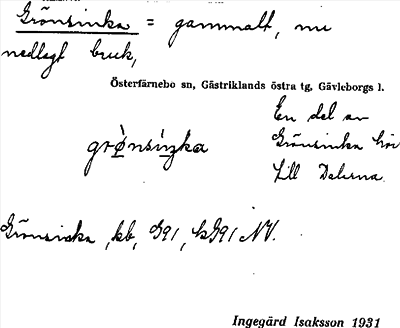 Grönsinka = gammalt, nu
nedlagt bruk,
Österfärnebo sn, Gästriklands östra tg, Gävleborgs l.
En del av
Grönsinka hör
till Dalarna.
grø̀nsìŋka
Grönsinka, kb, G91, kG91 NV.
Ingegärd Isaksson 1931